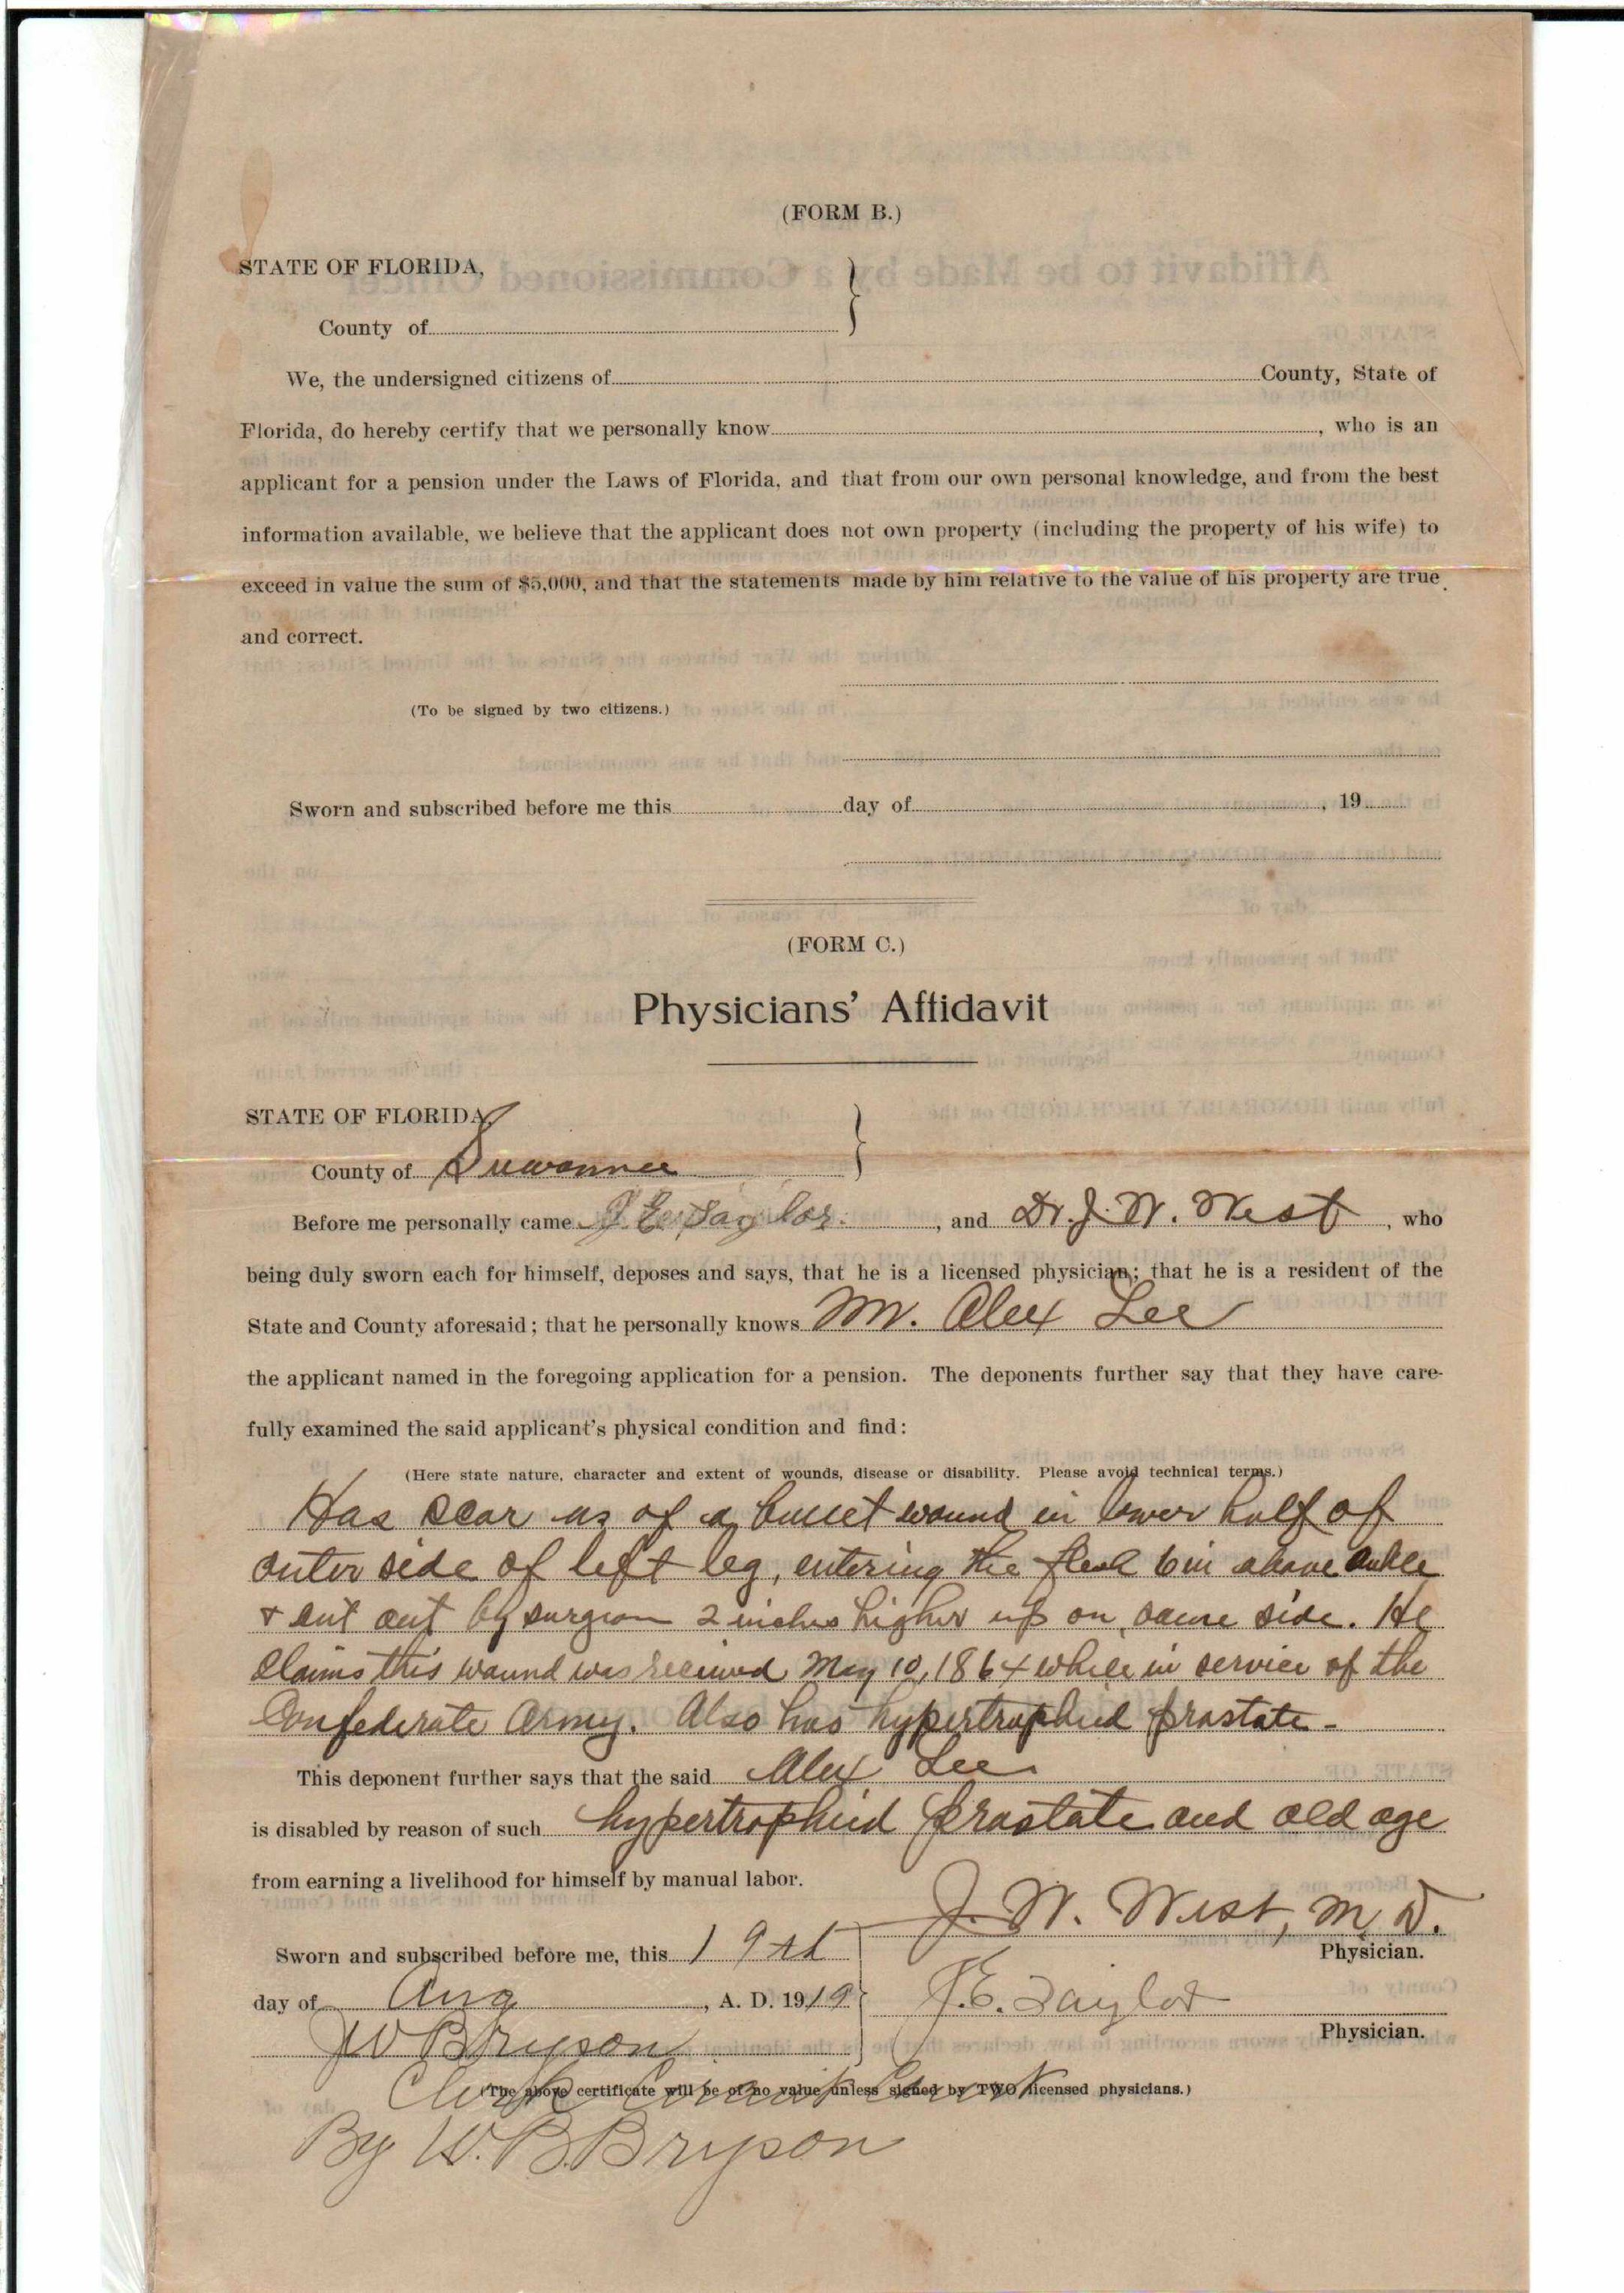 (FORM B.)
STATE OF FLORIDA,
County of
We, the undersigned citizens of County, State of
Florida, do hereby certify that we personally know , who is an
applicant for a pension under the Laws of Florida, and that from our own personal knowledge, and from the best
information available, we believe that the applicant does not own property (including the property of his wife) to
exceed in value the sum of $5,000, and that the statements made by him relative to the value of his property are true
and correct.
(To be signed by two citizens.)
Sworn and subscribed before me this day of , 19
(FORM C.)
Physicians' Affidavit
STATE OF FLORIDA,
County of Suwannee
Before me personally came J. E. Taylor. , and Dr. J. W. West , who
being duly sworn each for himself, deposes and says, that he is a licensed physician; that he is a resident of the
State and County aforesaid; that he personally knows Mr. Alex Lee
the applicant named in the foregoing application for a pension. The deponents further say that they have care-
fully examined the said applicant's physical condition and find:
(Here state nature, character and extent of wounds, disease or disability. Please avoid technical terms.)
Has scar as of a bullet wound in lower half of
outer side of left leg, entering the flesh 6 in above ankle
& cut out by surgeon 2 inches higher up on same side. He
claims this wound was received May 10, 1864 while in service of the
Confederate Army. Also has hypertrophied prostate -
This deponent further says that the said Alex Lee
is disabled by reason of such hypertrophied prostate and old age
from earning a livelihood for himself by manual labor.
J. W. West, M. D.
Sworn and subscribed before me, this 19st Physician.
day of Aug , A. D. 1919 J. E. Taylor
J W Bryson Physician.
Clerk Circuit Court
(The above certificate will be of no value unless signed by TWO licensed physicians.)
By W. B. Bryson